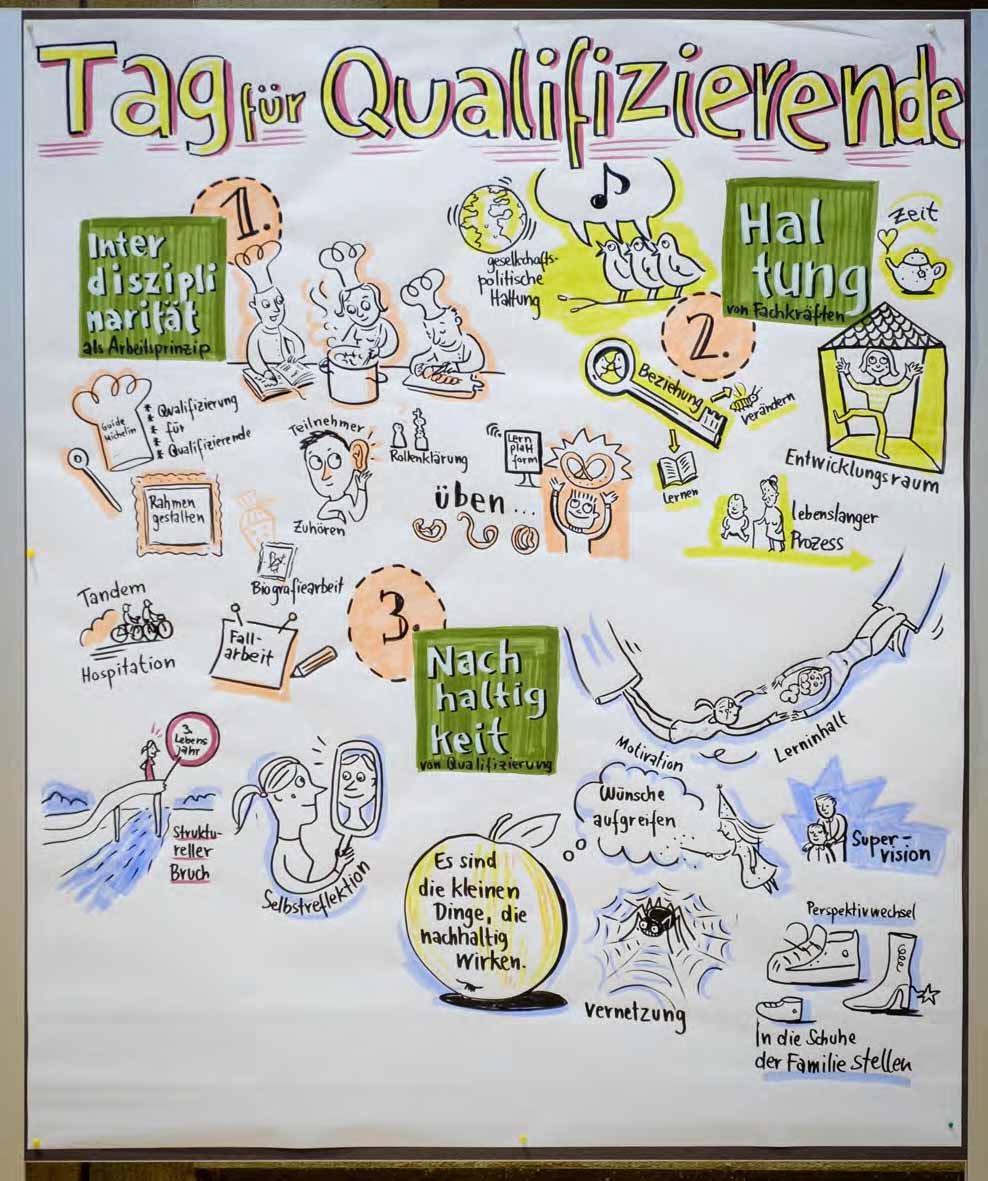 Tag für Qualifizierende
1.
Inter
diszipli
narität
als Arbeitsprinzip
Guide
Michelin
* Qualifizierung
* für
* Qualifizierende
*
Rahmen
gestalten
Teilnehmer
Zuhören
Rollenklärung
Lern
platt
form
üben...
Biografiearbeit
Tandem
Hospitation
Fall-
arbeit
2.
Hal
tung
von Fachkräften
gesellschafts-
politische
Haltung
Zeit
Beziehung
verändern
Lernen
Entwicklungsraum
Lebenslanger
Prozess
3.
Nach
haltig
keit
von Qualifizierung
Motivation
Lerninhalt
3.
Lebens
jahr
Struktu-
reller
Bruch
Selbstreflektion
Es sind
die kleinen
Dinge, die
nachhaltig
wirken.
Wünsche
aufgreifen
Super-
vision
Vernetzung
Perspektivwechsel
In die Schuhe
der Familie stellen